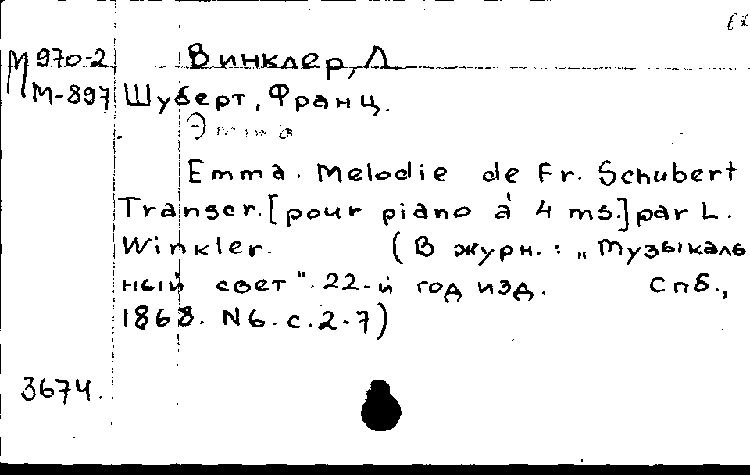 М 970-2 Винклер, Л
М-897 Шуберт, Франц.
Эмма
Emma. Melodie de Fr. Schubert
Transcr. [pour piano à 4 ms.] par L.
Winkler. (В журн.: „Музыкаль
ный свет". 22-й год изд. Спб.,
1868. N6. с. 2-7)
3674.